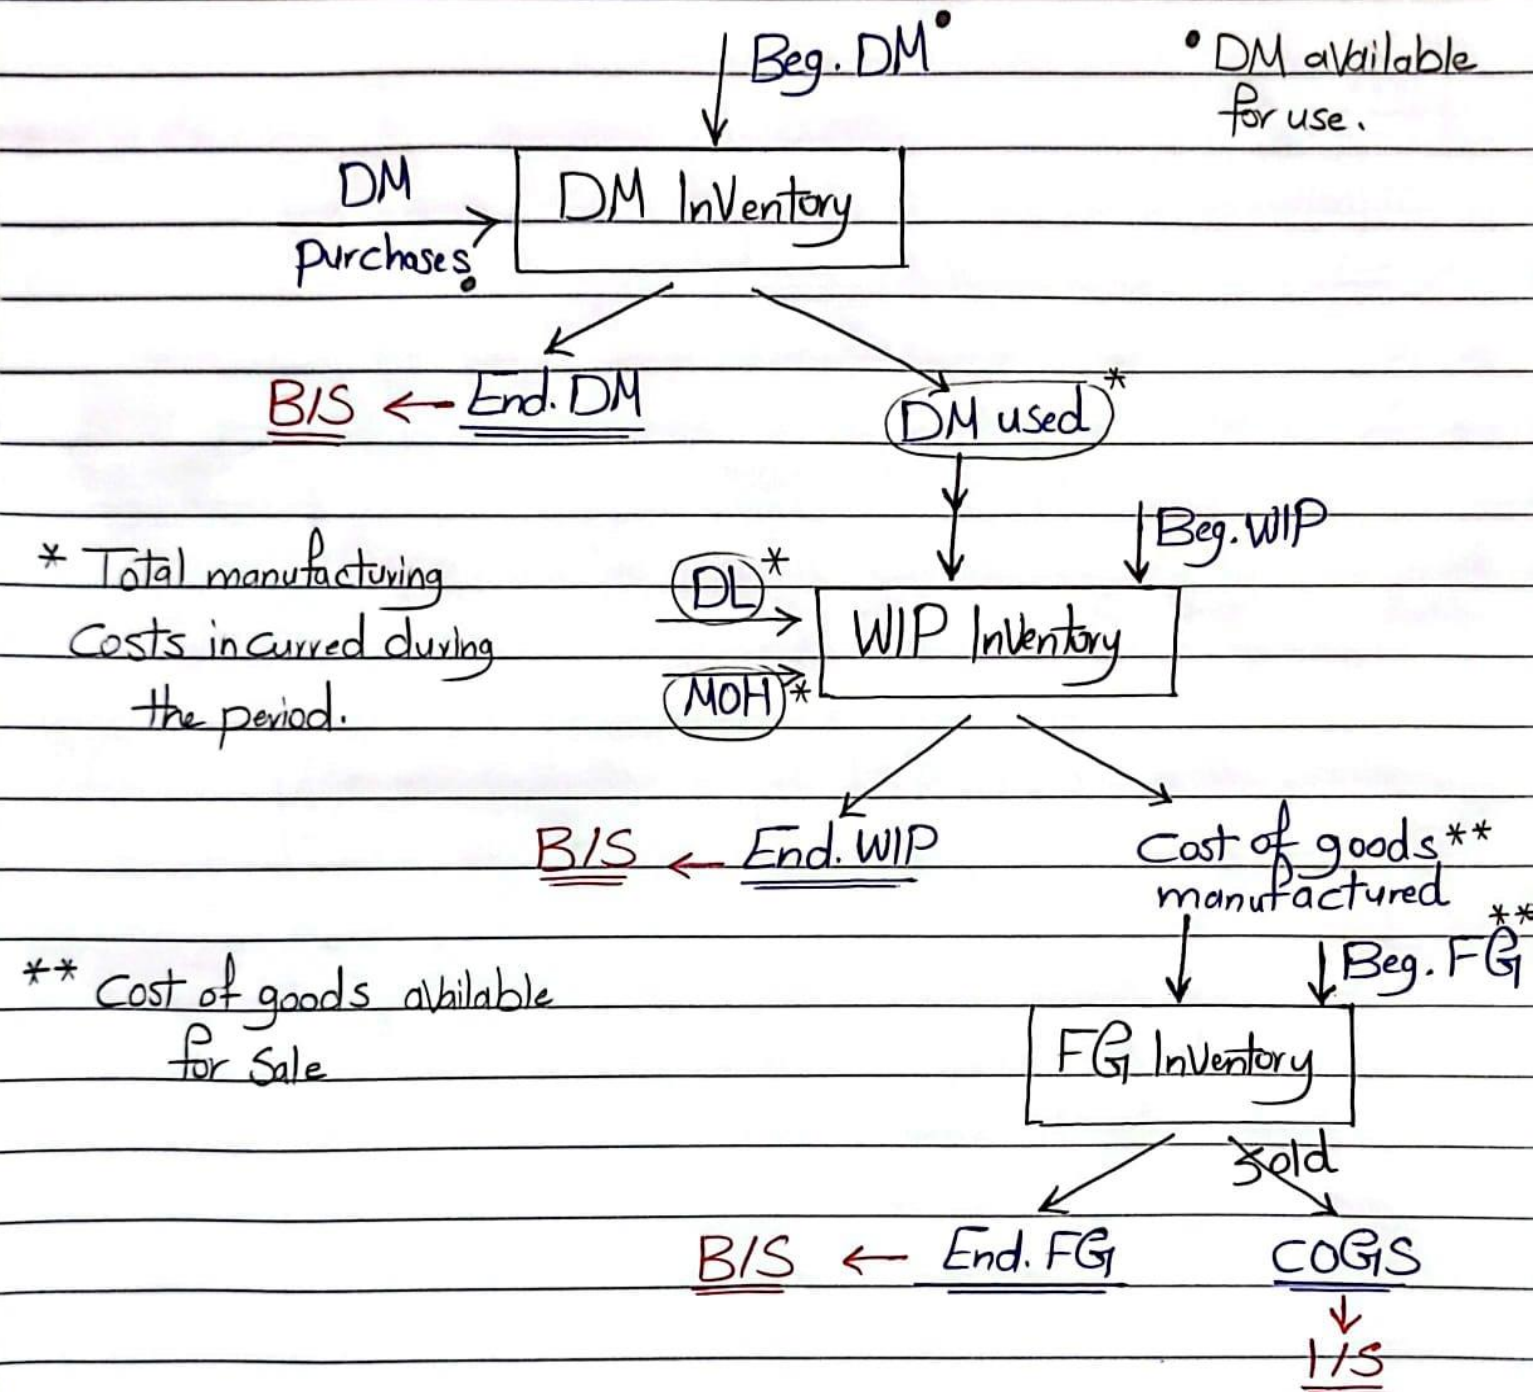 Beg. DM•
• DM available
for use.
DM
purchases•
DM Inventory
B/S ← End. DM
DM used*
Beg. WIP
* Total manufacturing
Costs incurred during
the period.
DL*
MOH*
WIP Inventory
B/S ← End. WIP
Cost of goods**
manufactured
Beg. FG**
** Cost of goods available
for Sale
FG Inventory
Sold
B/S ← End. FG
COGS
I/S